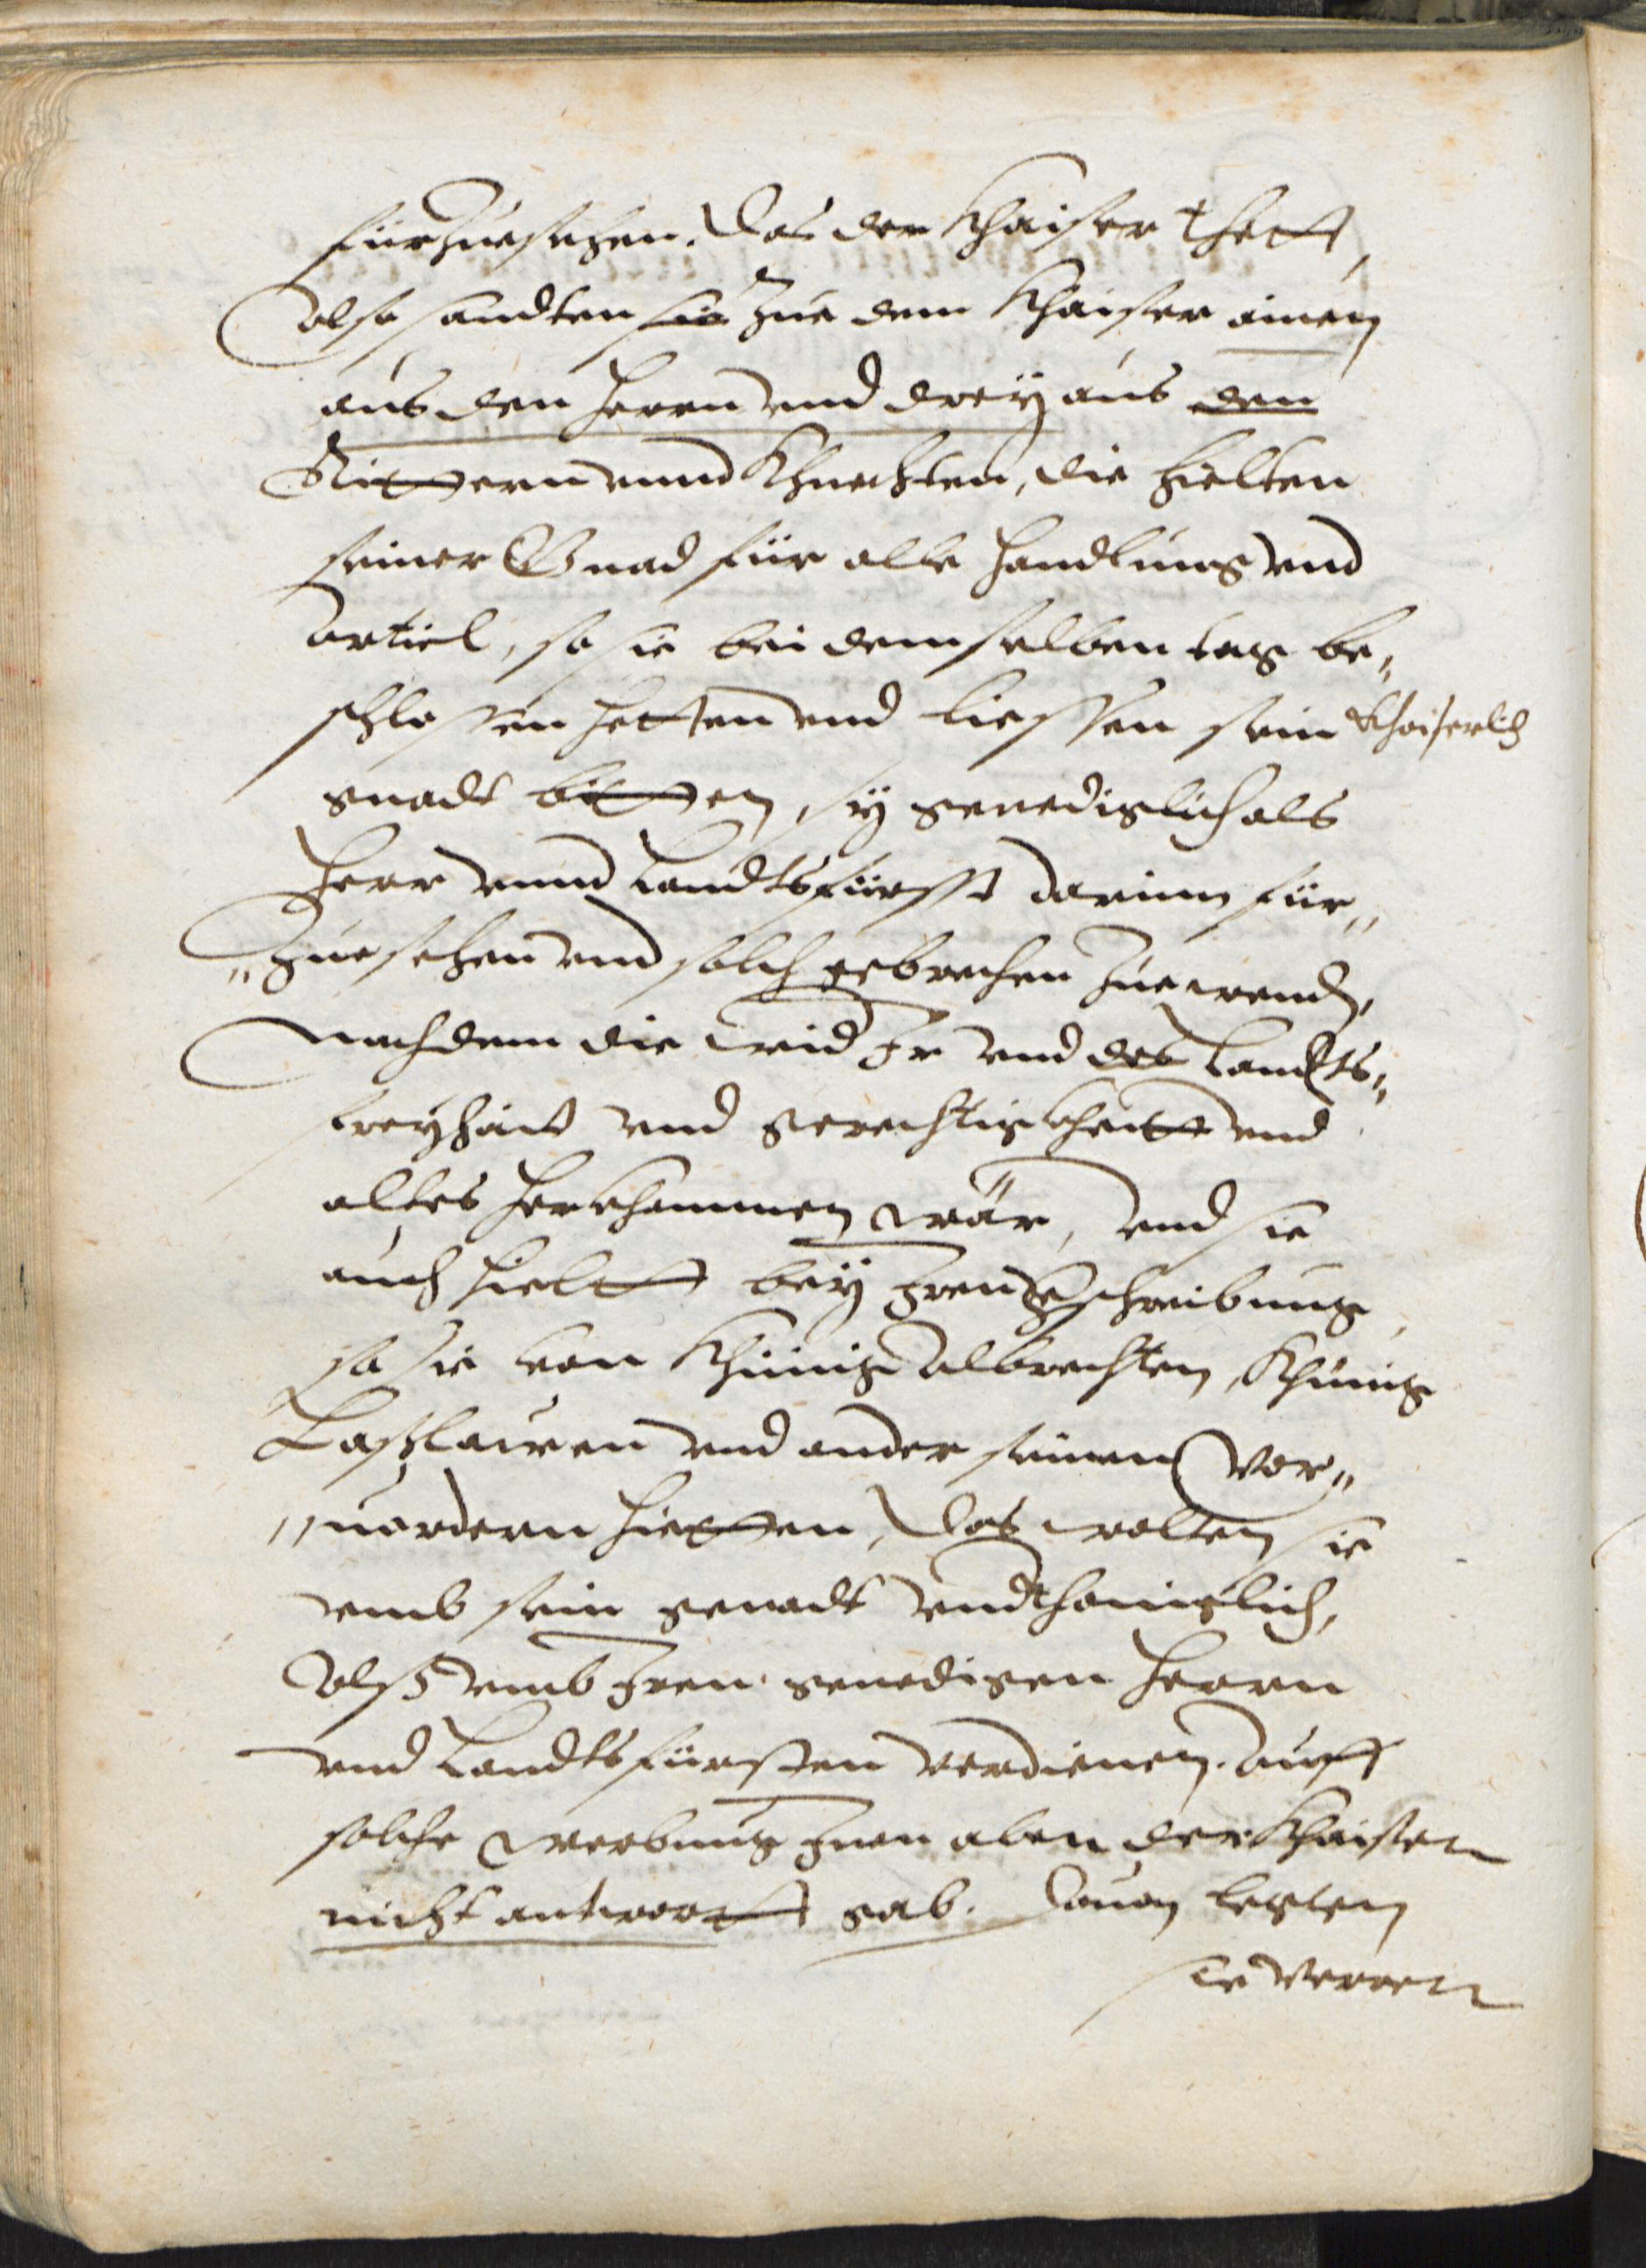 fürzusehen. Das der Khaiser thett,
Also sandten sie zue dem Khaiser ainen
aus den Herrn vnd dreÿ aus den
Rittern vnnd Khnechten, die hielten
seiner Gnad für alle handlung vnd
artickl, so sie bei demselben tag be„
schlossen hetten vnd liessen sein Khaiserlich
gnadt bitten, sÿ genediglich als
Herr vnnd Landtsfürsst darinn für„
„zuesehen vnd solch gebrechen zue wenden,
nachdem die wid Ir vnd des Landts„
freÿhait vnd gerechtigkhait vnd
altes herkhommen wär, vnd sie
auch hielt beÿ Iren verschreibung
so sie von Khünig Albrechten, Khünig
Lasslawen vnd ander seinen vor„
„uordern hietten, Das wolten sie
vmb sein genadt vndthäniglich,
Als vmb Iren genedigen Herrn
vnd Landtsfürsten verdienen. Auff
solche werbung Inen aber der Khaiser
nicht antwort gab. Dauon legten
sie Verrer